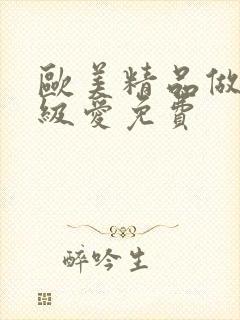 歐美精品做
級愛免費
醉吟生